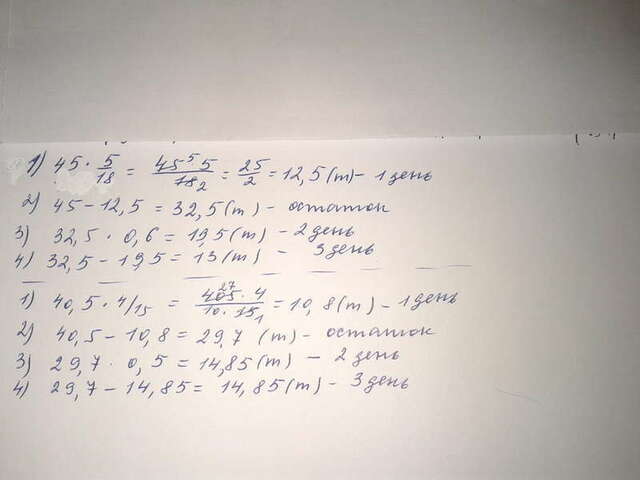 1) 45 · 5/18 = 45⁵ 5/18₂ = 25/2 = 12,5 (т) - 1 день
2) 45 - 12,5 = 32,5 (т) - остаток
3) 32,5 · 0,6 = 19,5 (т) - 2 день
4) 32,5 - 19,5 = 13 (т) - 3 день
1) 40,5 · 4/15 = 405²⁷ · 4/10 · 15₁ = 10,8 (т) - 1 день
2) 40,5 - 10,8 = 29,7 (т) - остаток
3) 29,7 · 0,5 = 14,85 (т) - 2 день
4) 29,7 - 14,85 = 14,85 (т) - 3 день